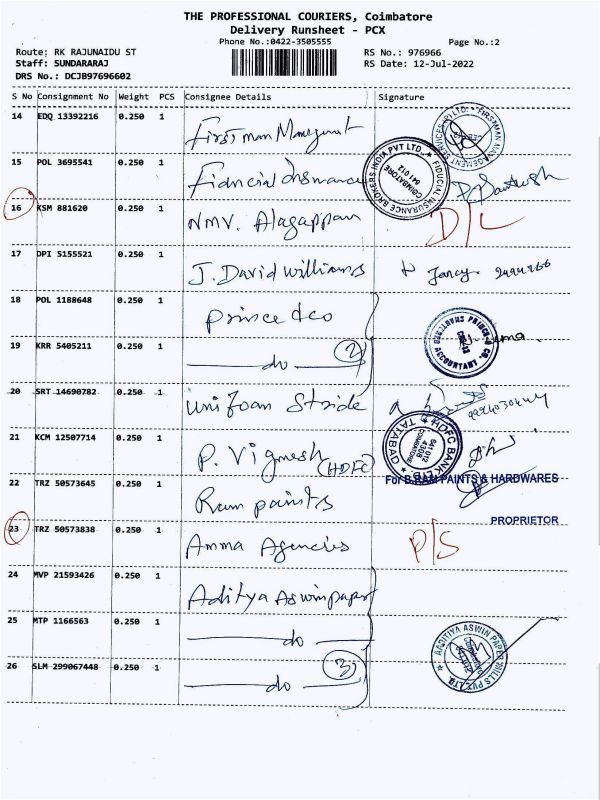 THE PROFESSIONAL COURIERS, Coimbatore
Delivery Runsheet - PCX
Phone No.:0422-3505555
Page No.:2
Route: RK RAJUNAIDU ST
RS No.: 976966
Staff: SUNDARARAJ
RS Date: 12-Jul-2022
DRS No.: DCJB97696602
S No Consignment No Weight PCS Consignee Details Signature
14 EDQ 13392216 0.250 1 Firstman Managment
15 POL 3695541 0.250 1 Fidncial Insurance
16 KSM 881620 0.250 1 NMV. Alagappan D/L
17 DPI 5155521 0.250 1 J. David Williams
18 POL 1188648 0.250 1 Prince &co
19 KRR 5405211 0.250 1 do 2
20 SRT 14690782 0.250 1 Unifoam Stride
21 KCM 12507714 0.250 1 P. Vignesh (HDFC)
22 TRZ 50573645 0.250 1 Ram paints
For B.RAM PAINTS & HARDWARES
PROPRIETOR
23 TRZ 50573838 0.250 1 Amma Agencies P/S
24 MVP 21593426 0.250 1 Aditya Aswin paper
25 MTP 1166563 0.250 1 do
26 SLM 299067448 0.250 1 do 3
FIDUCIAL INSURANCE BROKERS INDIA PVT LTD.
COIMBATORE
641 012
HDFC BANK
TATABAD
COIMBATORE
641 012
ACCOUNTANT